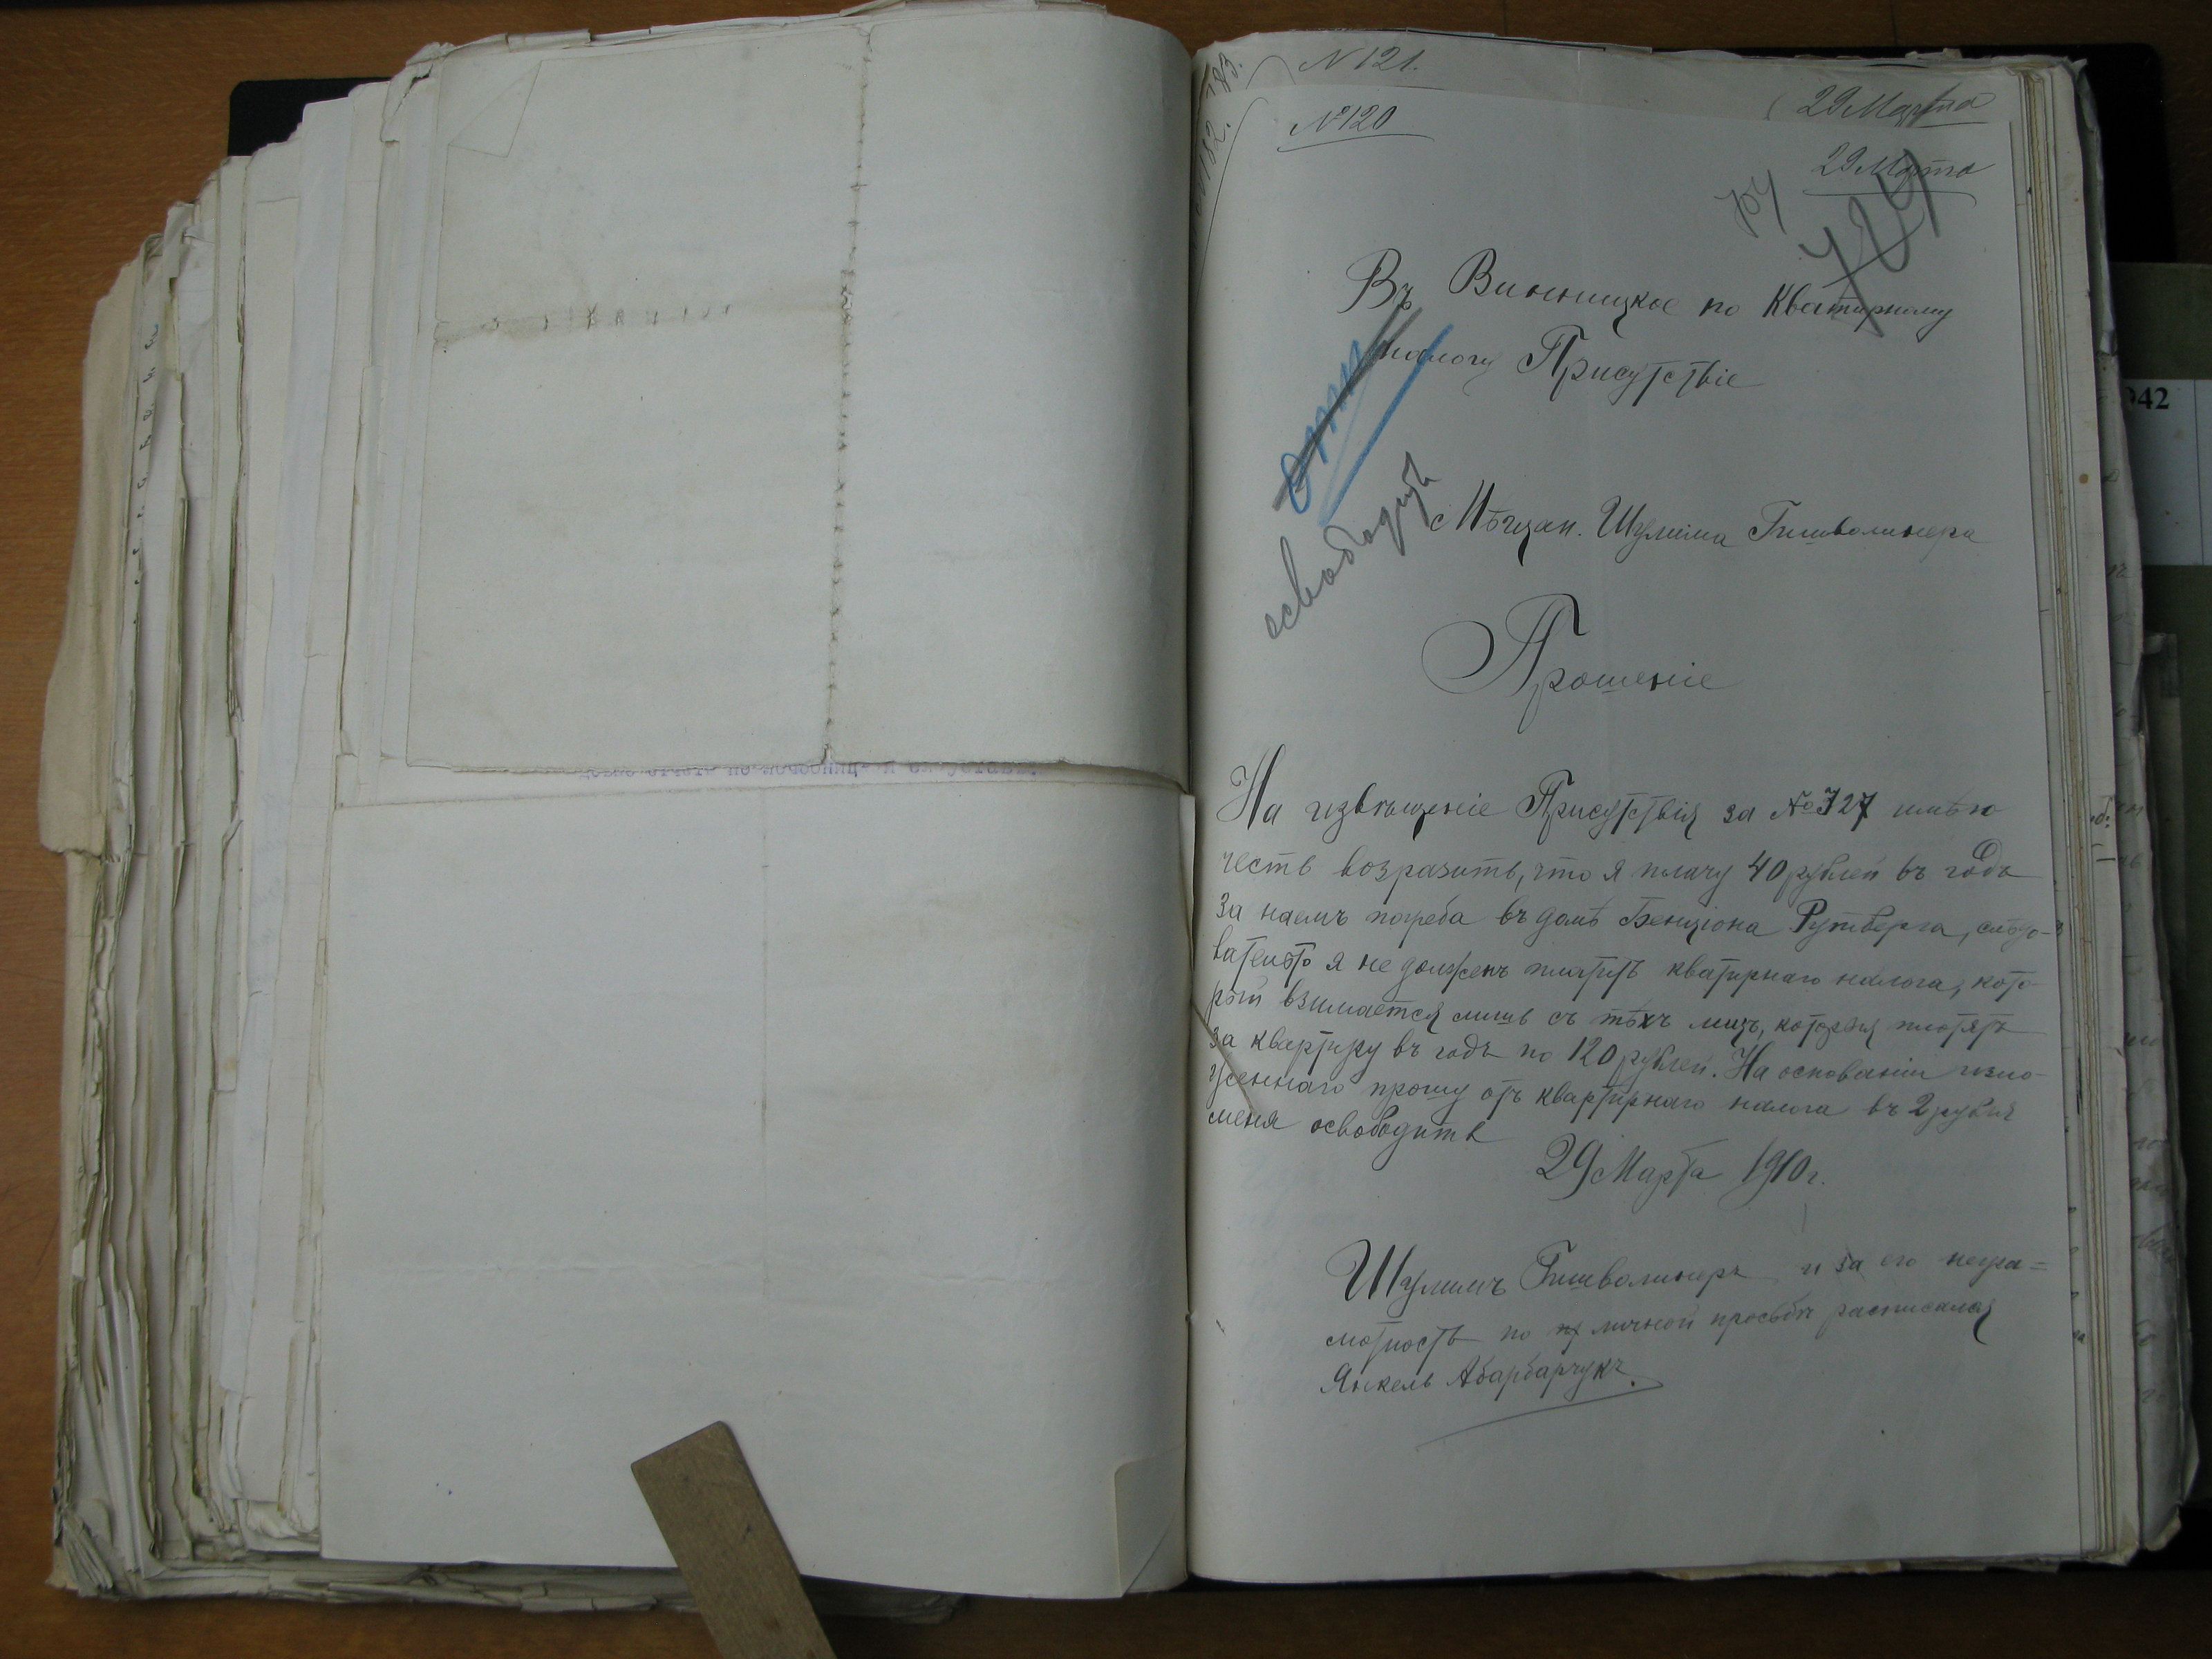 N 121.
29 Марта
№ 120
29 Марта
704
Въ Винницкое по Квартирному
налогу Присутствіе
освободить
Мѣщан. Шулима Гишволинера
Прошеніе
На извѣщеніе Присутствія за № 727 имѣю
честь возразить, что я плачу 40 рублей въ годъ
за наемъ погреба въ домѣ Бенціона Рутберга, слѣдо-
вательно я не долженъ платить квартирнаго налога, кото-
рый взимается лишь съ тѣхъ лицъ, которыя платятъ
за квартиру въ годъ по 120 рублей. На основаніи изло-
женнаго прошу отъ квартирнаго налога въ 2 рубля
меня освободить
29 Марта 1910 г.
Шулимъ Гишволинеръ и за его негра=
мотность по личной просьбѣ расписался
Янкель Абарбарчукъ.
942